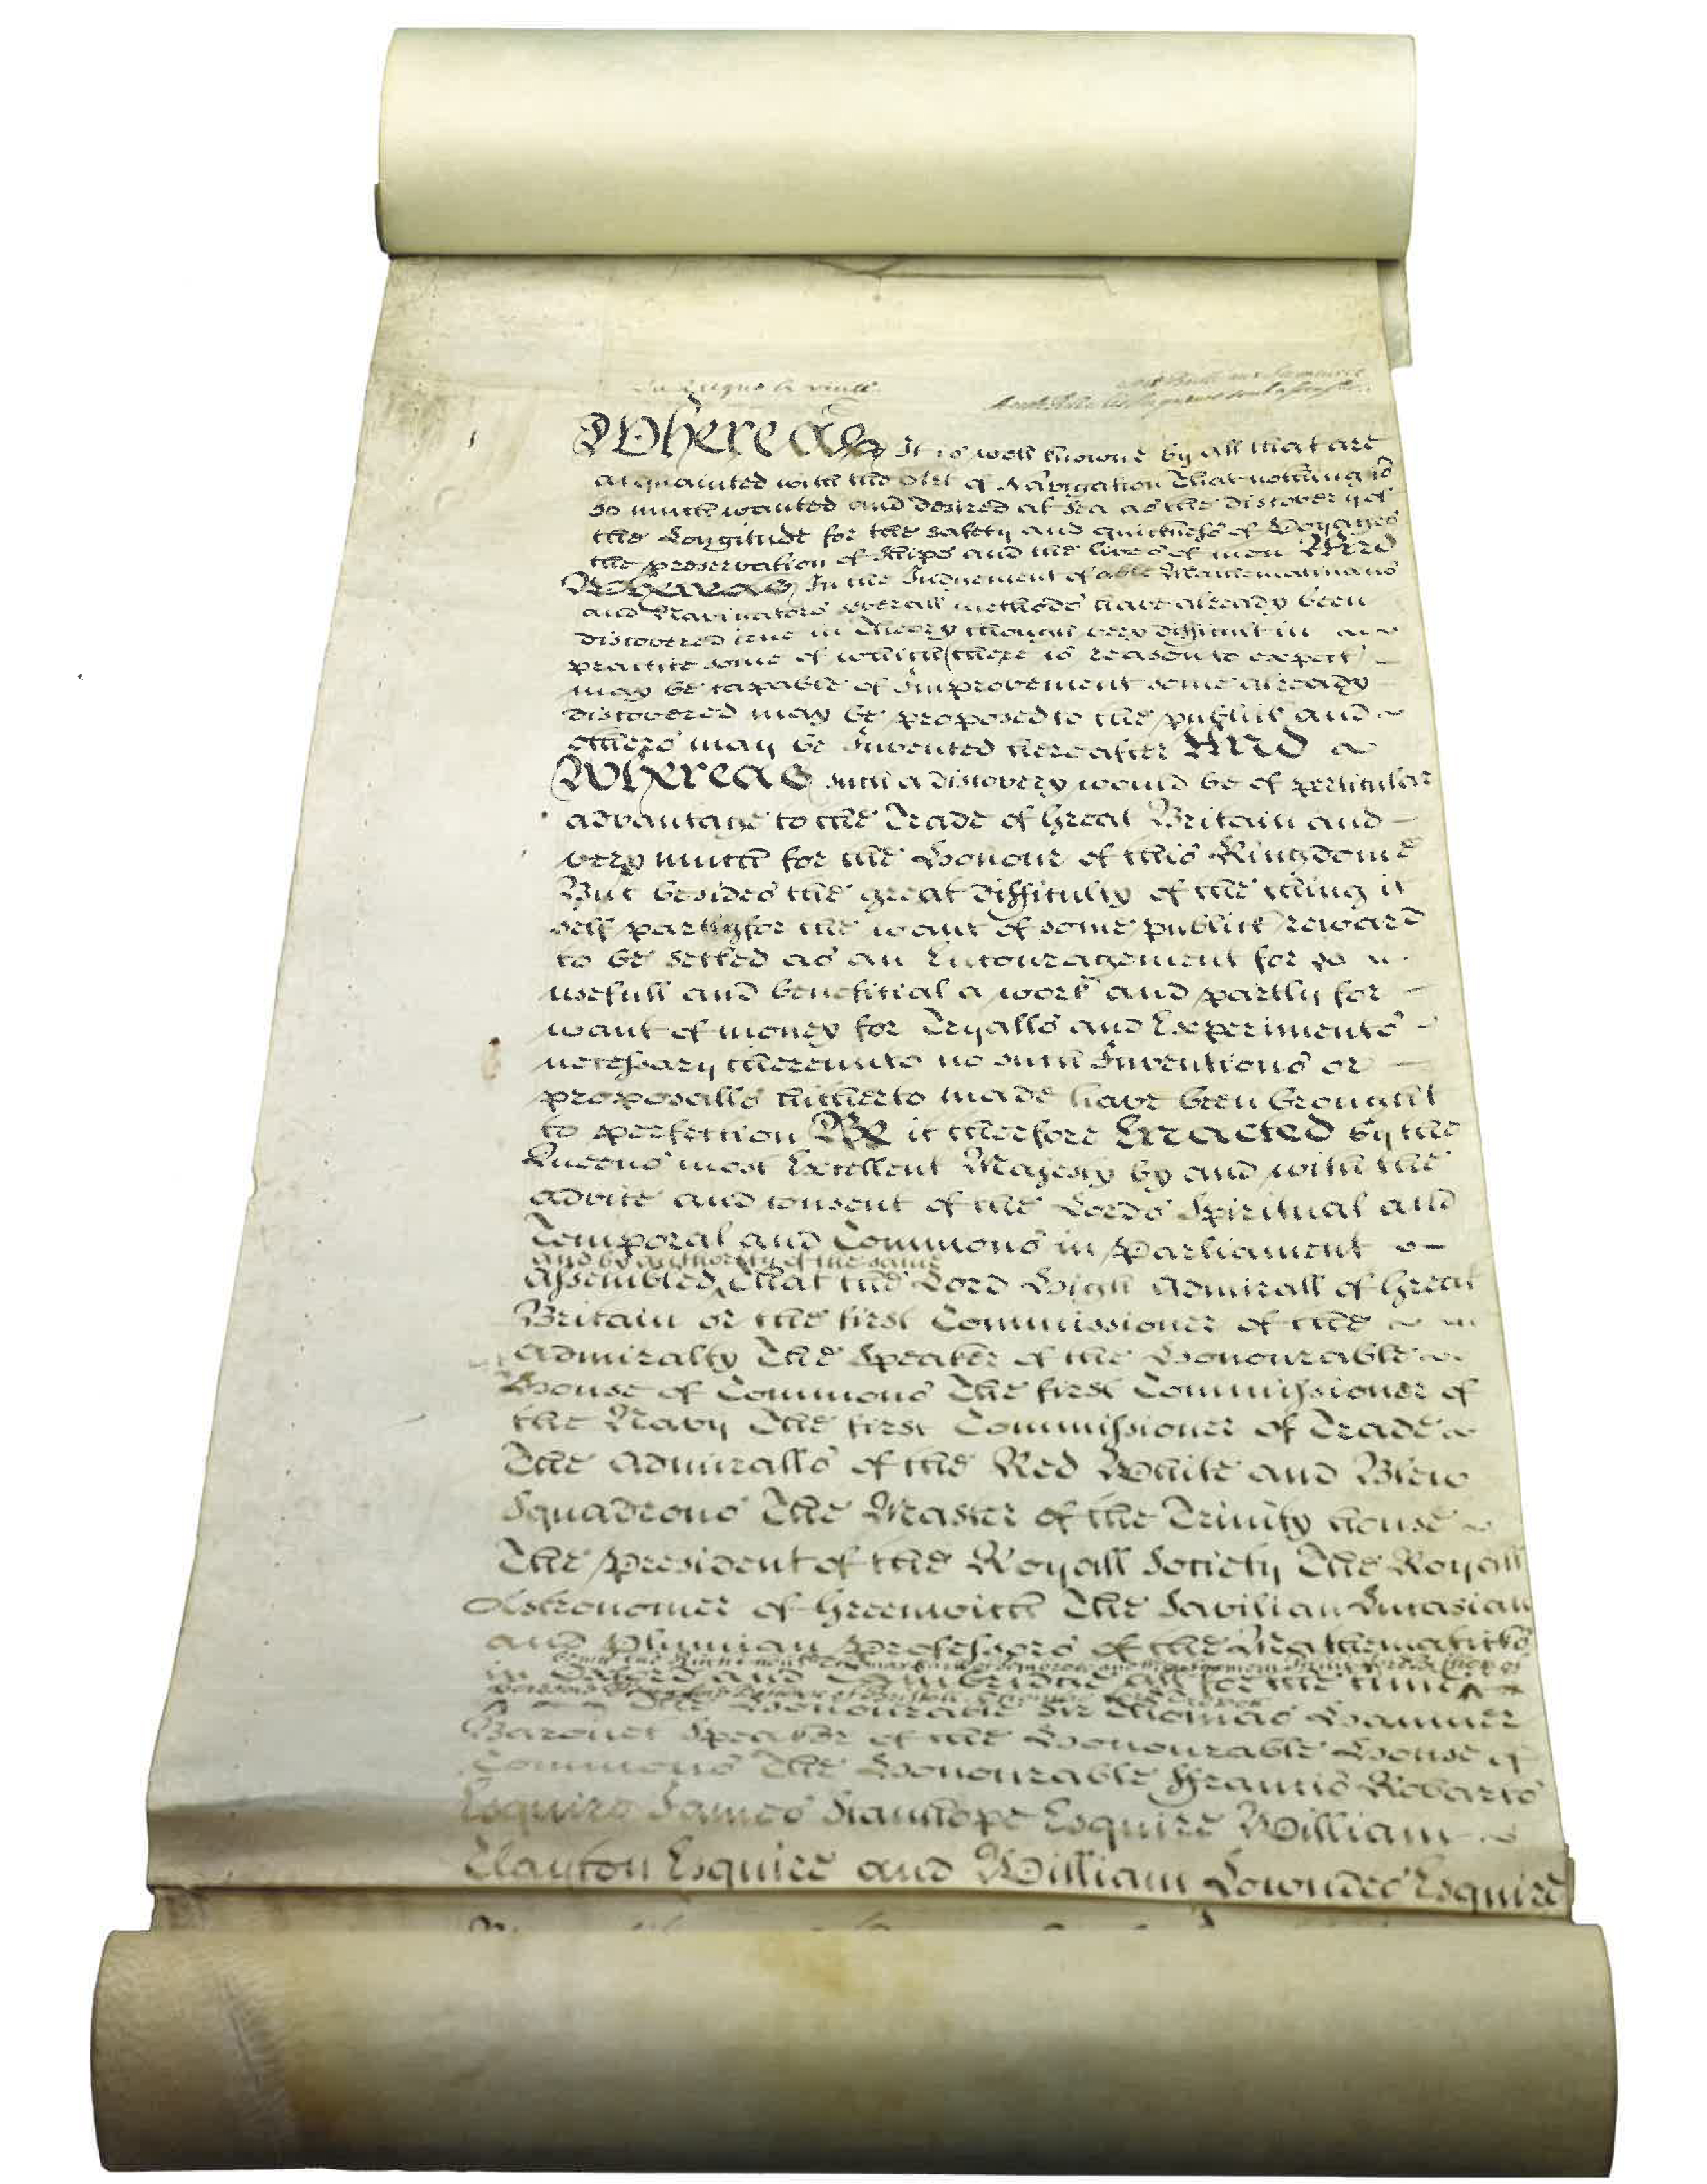 La Reyne le veult
Whereas It is well knowne by all that are
acquainted with the Art of Navigation That nothing is
so much wanted and desired at Sea as the discovery of
the Longitude for the safety and quickness of Voyages
the preservation of Ships and the lives of men And
Whereas In the Judgement of able Mathematicians
and Navigators severall methods have already been
discovered true in Theory though very difficult in
practice some of which (there is reason to expect)
may be capable of Improvement some already
discovered may be proposed to the publick and
others may be Invented hereafter And
Whereas such a discovery would be of perticular
advantage to the Trade of Great Britain and
very much for the Honour of this Kingdome
But besides the great difficulty of the thing it
self partly for the want of some publick reward
to be setled as an Encouragement for so
usefull and beneficial a work and partly for
want of money for Tryalls and Experiments
necessary thereunto no such Inventions or
proposalls hitherto made have been brought
to perfection Be it therefore Enacted by the
Queens most Excellent Majesty by and with the
advice and consent of the Lords Spiritual and
Temporal and Commons in Parliament
and by authority of the same
Assembled That the Lord High Admirall of Great
Britain or the first Commissioner of the
Admiralty The Speaker of the Honourable
House of Commons The first Commissioner of
the Navy The first Commissioner of Trade
The Admiralls of the Red White and Blew
Squadrons The Master of the Trinity house
The President of the Royall Society The Royall
Astronomer of Greenwich The Savilian Lucasian
and Plumian Professors of the Mathematicks
in Oxford and Cambridge all for the time
The Honourable Sir Thomas Hanmer
Baronet Speaker of the Honourable House of
Commons The Honourable Francis Robarts
Esquire James Stanhope Esquire William
Clayton Esquire and William Lowndes Esquire